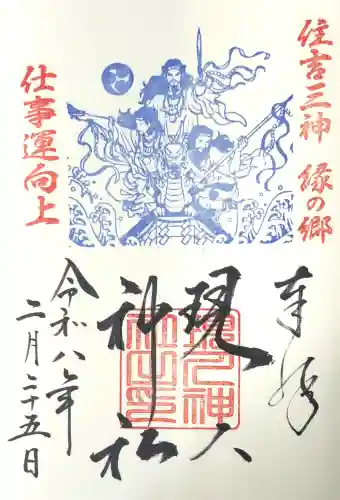 住吉三神 縁の郷
仕事運向上
奉拝
現人
神社
令和八年
二月二十五日